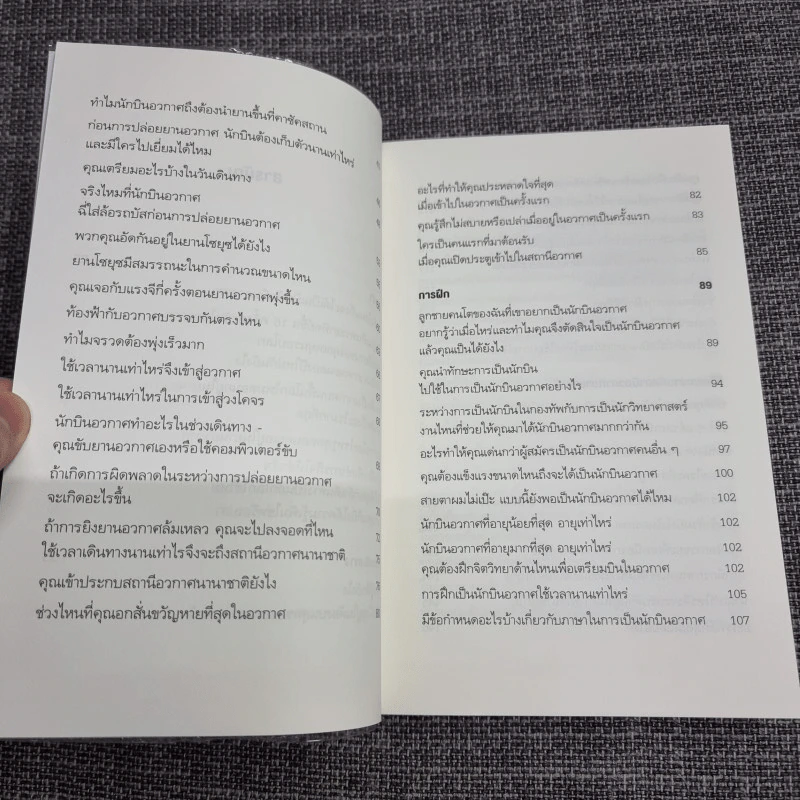 ทำไมนักบินอวกาศถึงต้องนำยานขึ้นที่คาซัคสถาน
ก่อนการปล่อยยานอวกาศ นักบินต้องเก็บตัวนานเท่าไหร่
และมีใครไปเยี่ยมได้ไหม
คุณเตรียมอะไรบ้างในวันเดินทาง
จริงไหมที่นักบินอวกาศ
ฉี่ใส่ล้อรถบัสก่อนการปล่อยยานอวกาศ
พวกคุณอัดกันอยู่ในยานโซยุซได้ยังไง
ยานโซยุซมีสมรรถนะในการคำนวณขนาดไหน
คุณเจอกับแรงจีกี่ครั้งตอนยานอวกาศพุ่งขึ้น
ท้องฟ้ากับอวกาศบรรจบกันตรงไหน
ทำไมจรวดต้องพุ่งเร็วมาก
ใช้เวลานานเท่าไหร่จึงเข้าสู่อวกาศ
ใช้เวลานานเท่าไหร่ในการเข้าสู่วงโคจร
นักบินอวกาศทำอะไรในช่วงเดินทาง -
คุณขับยานอวกาศเองหรือใช้คอมพิวเตอร์ขับ
ถ้าเกิดการผิดพลาดในระหว่างการปล่อยยานอวกาศ
จะเกิดอะไรขึ้น
ถ้าการยิงยานอวกาศล้มเหลว คุณจะไปลงจอดที่ไหน
ใช้เวลาเดินทางนานเท่าไรจึงจะถึงสถานีอวกาศนานาชาติ
คุณเข้าประกบสถานีอวกาศนานาชาติยังไง
ช่วงไหนที่คุณอกสั่นขวัญหายที่สุดในอวกาศ
อะไรที่ทำให้คุณประหลาดใจที่สุด
เมื่อเข้าไปในอวกาศเป็นครั้งแรก 82
คุณรู้สึกไม่สบายหรือเปล่าเมื่ออยู่ในอวกาศเป็นครั้งแรก 83
ใครเป็นคนแรกที่มาต้อนรับ
เมื่อคุณเปิดประตูเข้าไปในสถานีอวกาศ 85
การฝึก 89
ลูกชายคนโตของฉันที่เขาอยากเป็นนักบินอวกาศ
อยากรู้ว่าเมื่อไหร่และทำไมคุณจึงตัดสินใจเป็นนักบินอวกาศ
แล้วคุณเป็นได้ยังไง 89
คุณนำทักษะการเป็นนักบิน
ไปใช้ในการเป็นนักบินอวกาศอย่างไร 94
ระหว่างการเป็นนักบินในกองทัพกับการเป็นนักวิทยาศาสตร์
งานไหนที่ช่วยให้คุณมาได้นักบินอวกาศมากกว่ากัน 95
อะไรทำให้คุณเด่นกว่าผู้สมัครเป็นนักบินอวกาศคนอื่น ๆ 97
คุณต้องแข็งแรงขนาดไหนถึงจะได้เป็นนักบินอวกาศ 100
สายตาผมไม่เป๊ะ แบบนี้ยังพอเป็นนักบินอวกาศได้ไหม 102
นักบินอวกาศที่อายุน้อยที่สุด อายุเท่าไหร่ 102
นักบินอวกาศที่อายุมากที่สุด อายุเท่าไหร่ 102
คุณต้องฝึกจิตวิทยาด้านไหนเพื่อเตรียมบินในอวกาศ 102
การฝึกเป็นนักบินอวกาศใช้เวลานานเท่าไหร่ 105
มีข้อกำหนดอะไรบ้างเกี่ยวกับภาษาในการเป็นนักบินอวกาศ 107